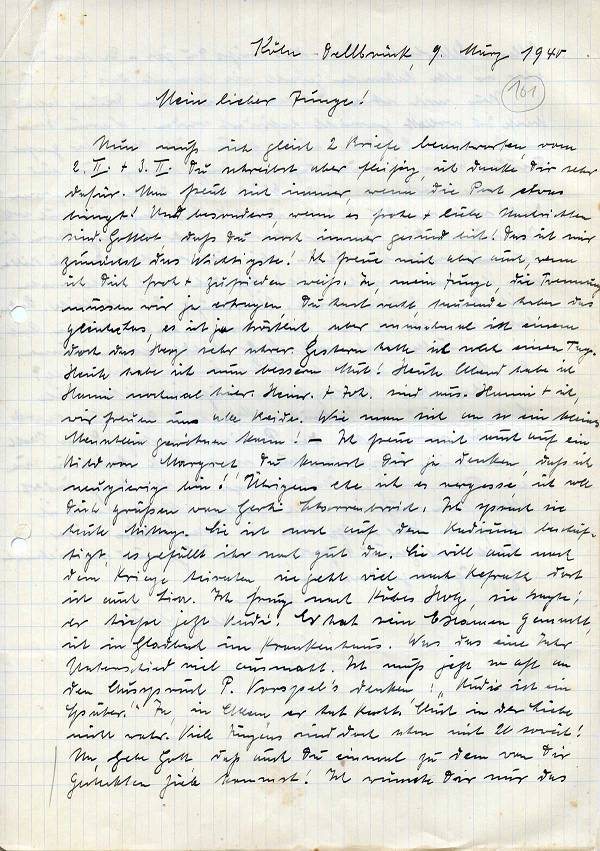 Köln-Dellbrück, 9. März 1940
161
Mein lieber Junge!
Nun muß ich gleich 2 Briefe beantworten, vom
2. II. + 3. II. Du schreibst aber fleißig, ich danke Dir sehr
dafür. Man freut sich immer, wenn die Post etwas
bringt! Und besonders, wenn es frohe + liebe Nachrichten
sind. Gottlob, daß Du noch immer gesund bist! Das ist mir
zunächst das Wichtigste! Ich freue mich aber auch, wenn
ich Dich froh + zufrieden weiß. Ja, mein Junge, die Trennung
müssen wir ja ertragen, Du hast recht, tausende haben das
gleiche, es ist ja tröstend aber manchmal ist einem
doch das Herz sehr schwer. Gestern hatte ich solch einen Tag.
Heute habe ich nun besseren Mut! Heute Abend habe ich
Hanni nochmal hier. Heinr. + Joh. sind aus. Hanni + ich,
wir freuen uns alle Beide. Wie man sich an so ein kleines
Menschlein gewöhnen kann! – Ich freue mich auch auf ein
Bild von Margret. Du kannst Dir ja denken, daß ich
neugierig bin! Übrigens ehe ich es vergesse, ich soll
Dich grüßen von Gerti. Ich sprach sie
heute Mittag. Sie ist noch auf dem Büro beschäf-
tigt, es gefällt ihr noch gut da. Sie will auch nach
dem Kriege heiraten, sie geht viel nach Refrath, dort
ist auch. Ich frug nach Köbes, sie sagte,
er hieße jetzt Rudi. Er hat sein Examen gemacht,
ist in Gladbach im Krankenhaus. Was das eine Jahr
Unterschied viel ausmacht. Ich muß jetzt so oft an
den Ausspruch P. denken! „Rudi ist ein
Ja, in er hat Blut in der Liebe
nicht wahr. Viele Jungens sind doch schon mit 20 soweit!
Na, gebe Gott, daß auch Du einmal zu dem von Dir
gesteckten Ziele kommst! Ich wünsche Dir nur das